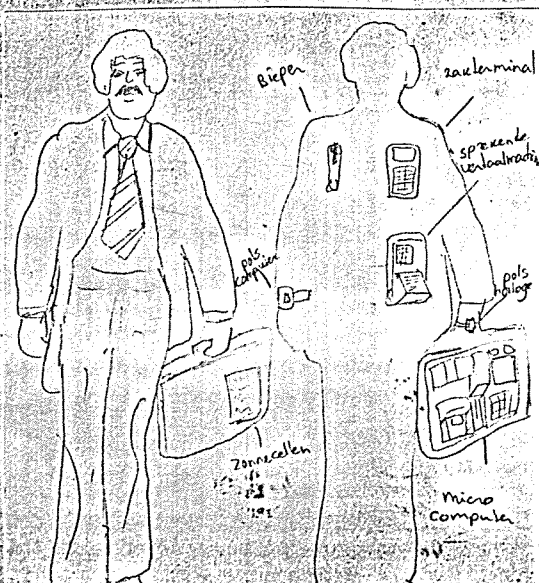 Bieper
zakterminal
sprekende
pols
computer
pols
horloge
zonnecellen
micro
computer